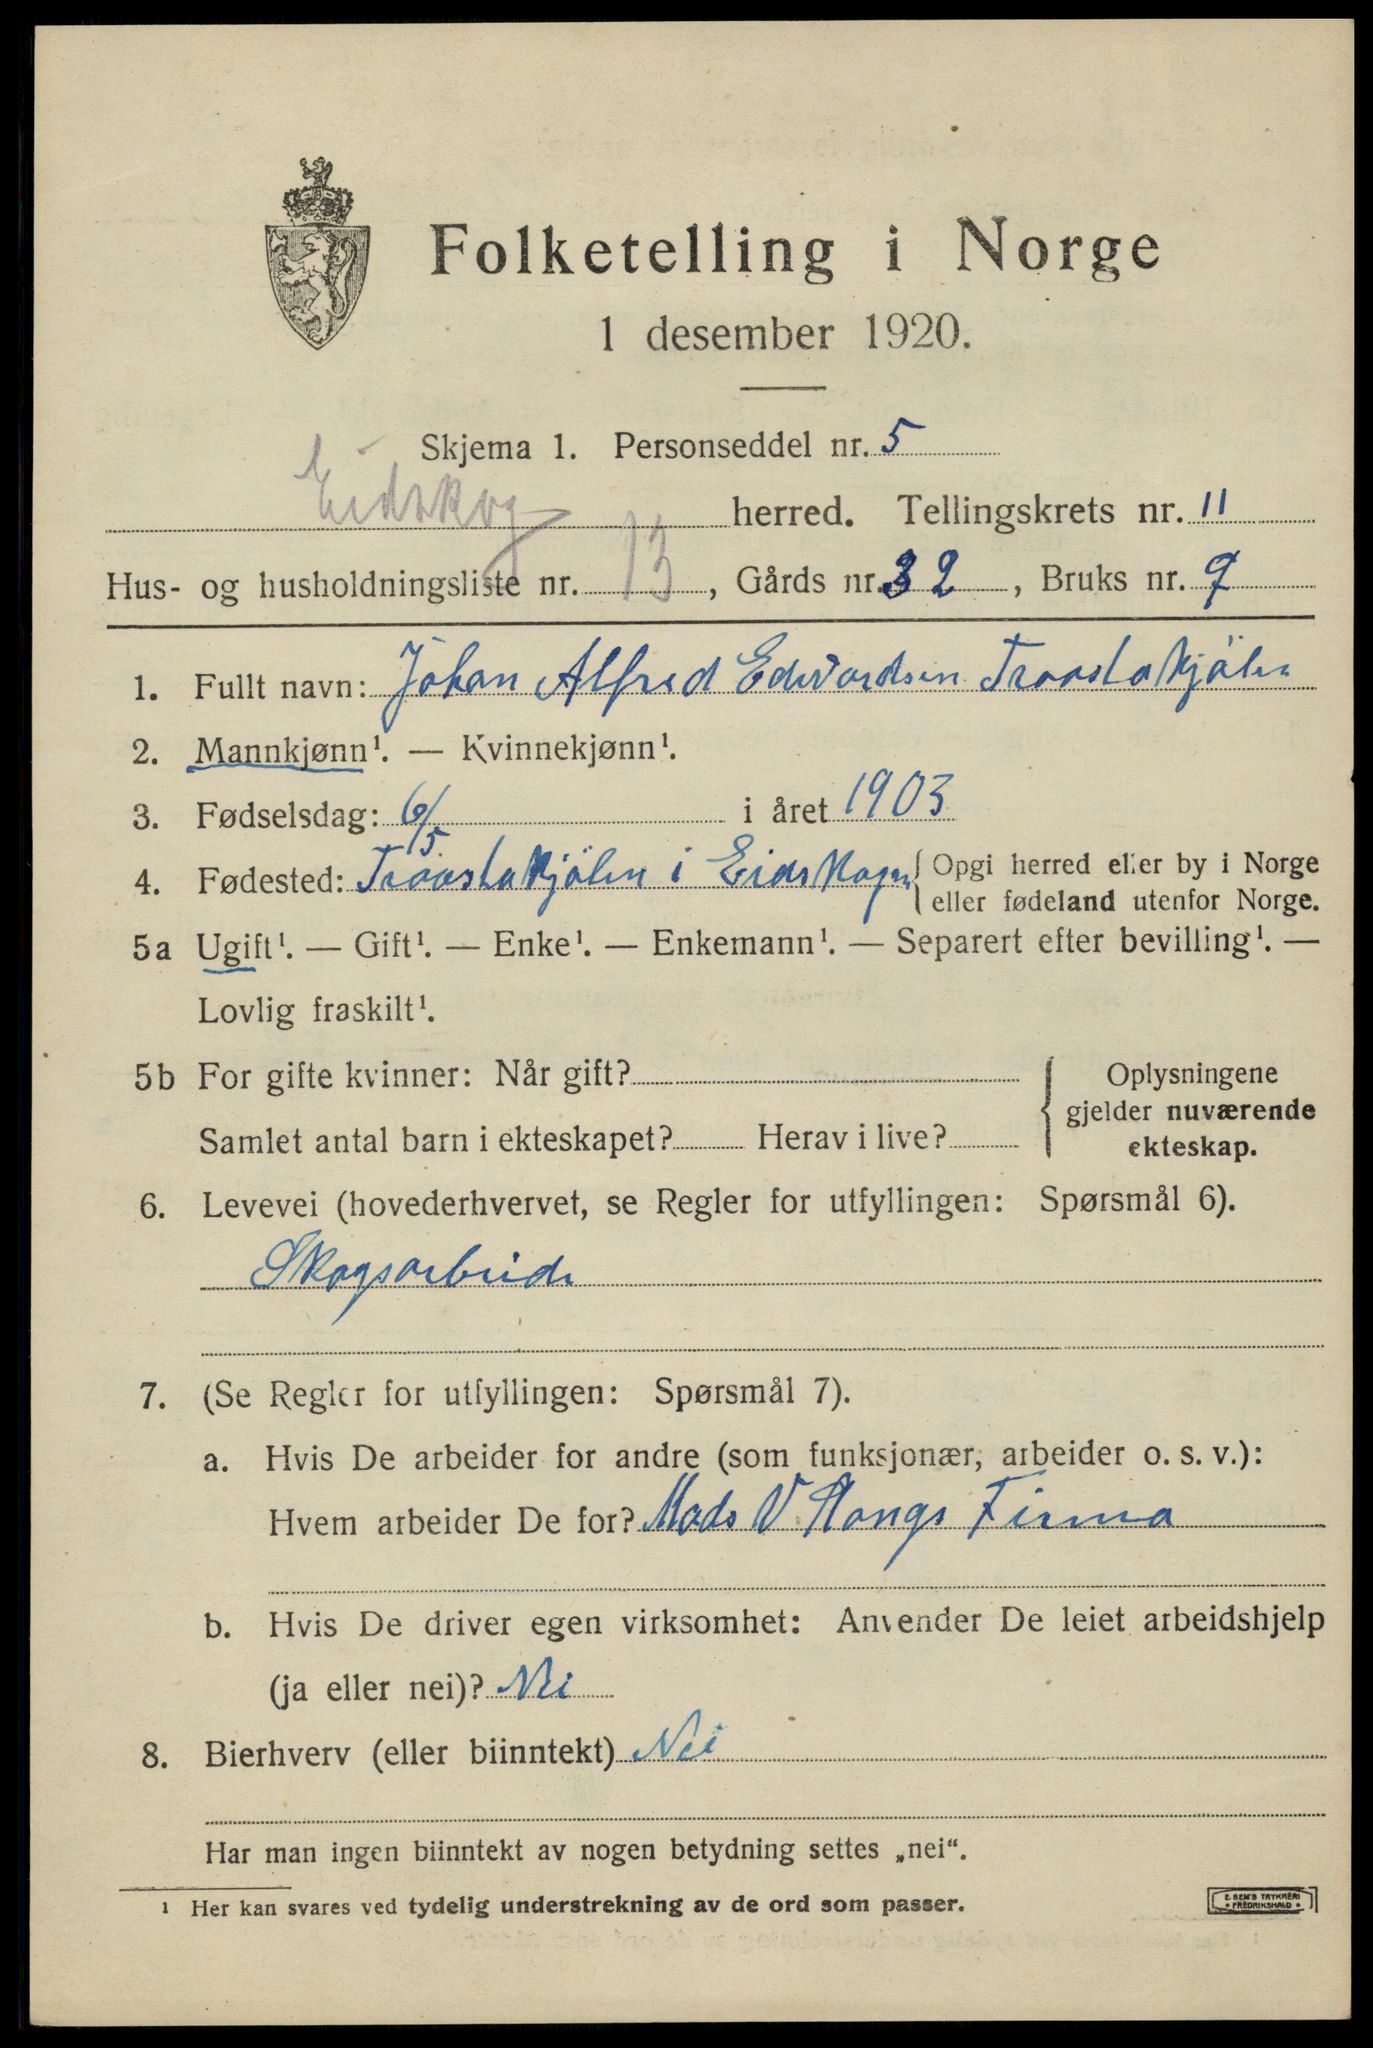 Folketelling i Norge
1 desember 1920.
Skjema 1. Personseddel nr. 5
Eidskog herred. Tellingskrets nr. 11
Hus- og husholdningsliste nr. 13, Gårds nr. 32, Bruks nr. 9
1. Fullt navn: Johan Alfred Edvardsen Traastakjölen
2. Mannkjønn¹. — Kvinnekjønn¹.
3. Fødselsdag: 6/5 i året 1903
4. Fødested: Traastakjölen i Eidskogen { Opgi herred eller by i Norge
eller fødeland utenfor Norge.
5a Ugift¹. — Gift¹. — Enke¹. — Enkemann¹. — Separert efter bevilling¹. —
Lovlig fraskilt¹.
5b For gifte kvinner: Når gift? { Oplysningene
gjelder nuværende
Samlet antal barn i ekteskapet? Herav i live? ekteskap.
6. Levevei (hovederhvervet, se Regler for utfyllingen: Spørsmål 6).
Skogsarbeide
7. (Se Regler for utfyllingen: Spørsmål 7).
a. Hvis De arbeider for andre (som funksjonær, arbeider o. s. v.):
Hvem arbeider De for? Mads V Stangs Firma
b. Hvis De driver egen virksomhet: Anvender De leiet arbeidshjelp
(ja eller nei)? Nei
8. Bierhverv (eller biinntekt) Nei
Har man ingen biinntekt av nogen betydning settes „nei“.
¹ Her kan svares ved tydelig understrekning av de ord som passer.
E. SEM'S TRYKKERI
FREDRIKSHALD